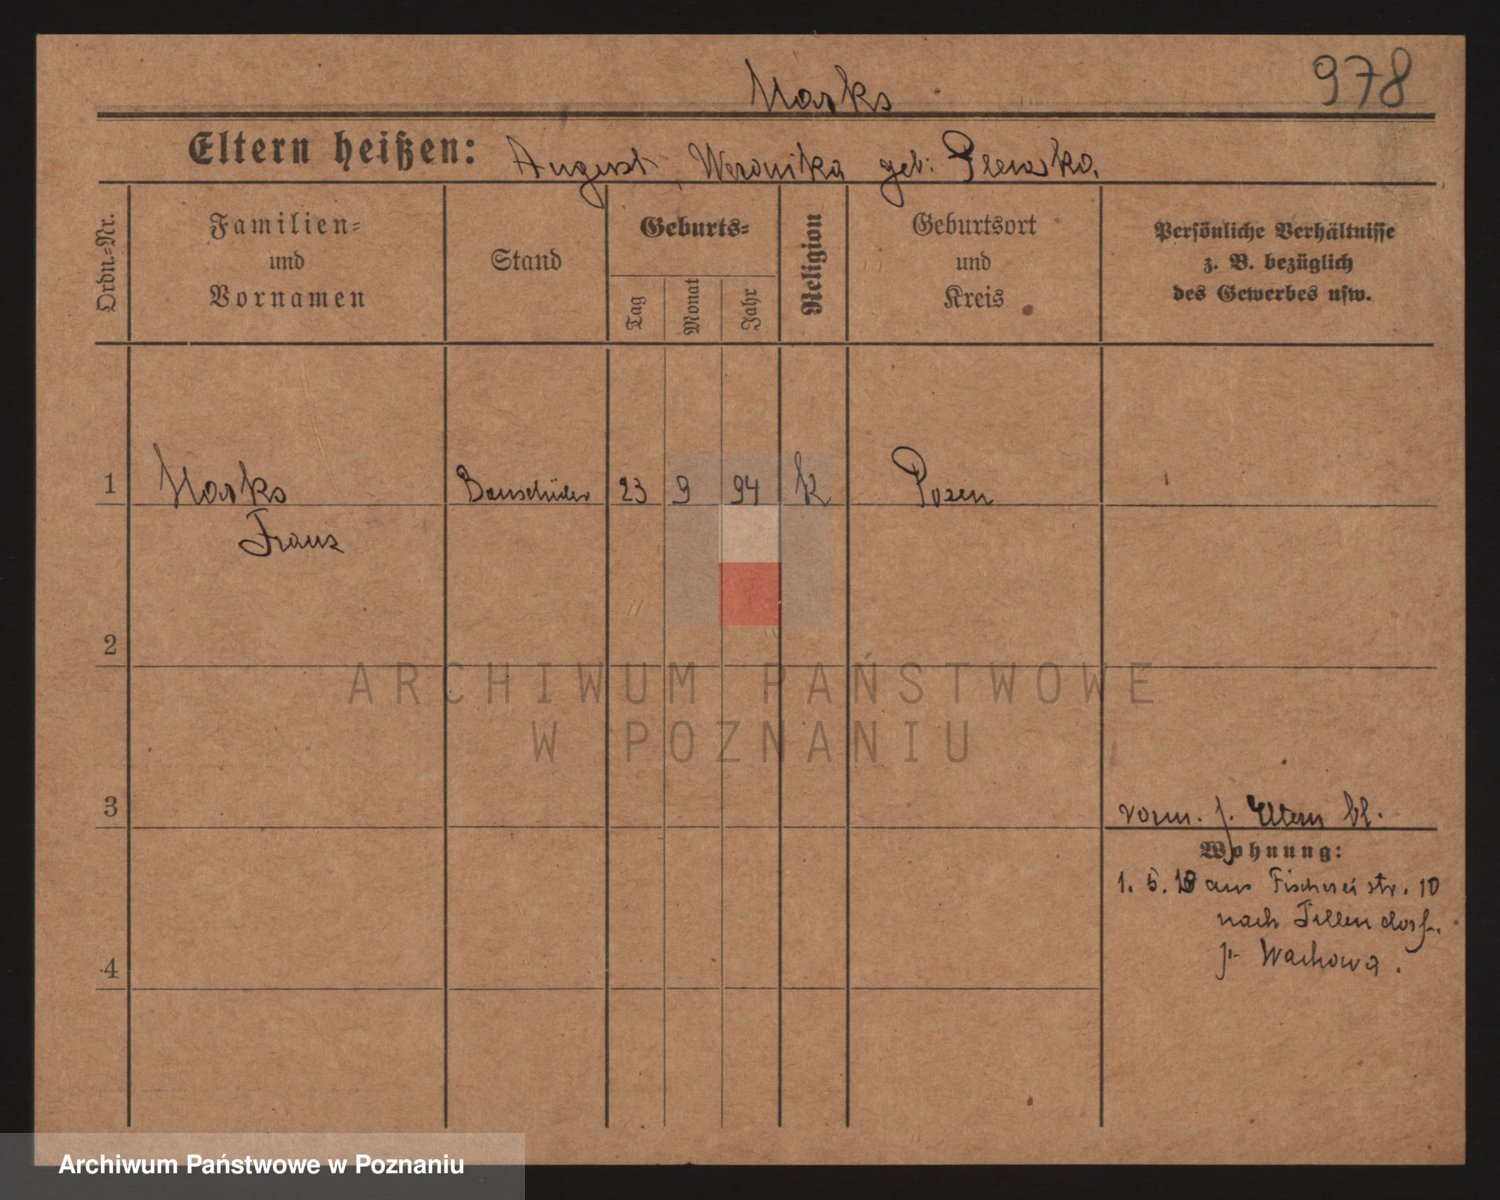 978
Marks
Eltern heißen: August, Weronika geb: Plewska.
Ordn.-Nr.
Familien-
und
Vornamen
Stand
Geburts-
Tag
Monat
Jahr
Religion
Geburtsort
und
Kreis
Persönliche Verhältnisse
z. B. bezüglich
des Gewerbes usw.
1 Marks Bauschüler 23 9 94 k Posen
Franz
2
ARCHIWUM PAŃSTWOWE
W POZNANIU
3
vorm. f. Eltern bl.
Wohnung:
1. 5. 18 aus Fischerei str. 10
nach
Wachowa.
4
Archiwum Państwowe w Poznaniu